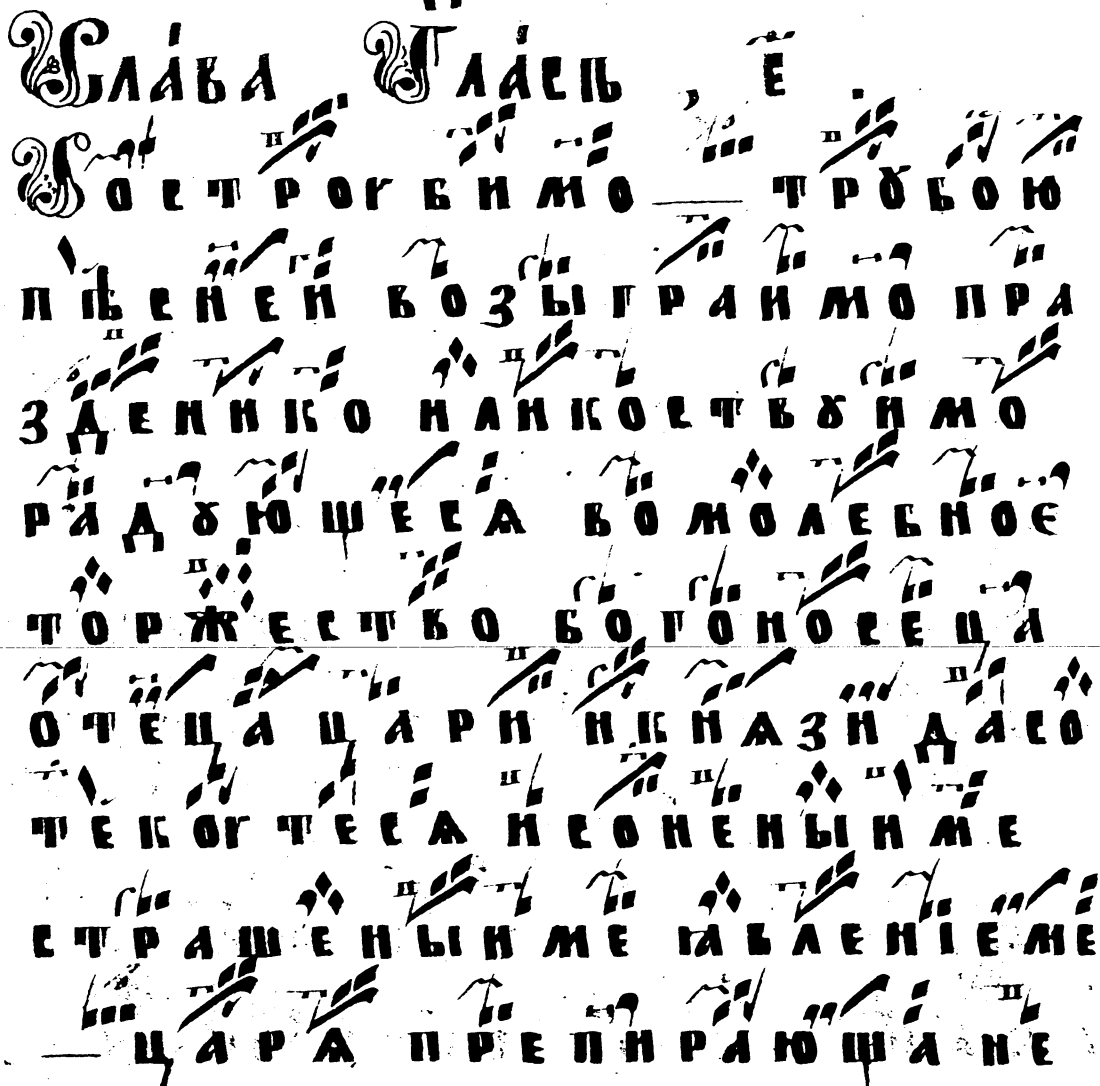 Слава Гласъ , е .
Востроꙋбимо — трꙋбою
пѣсненеи возыграимо пра
зденико и ликоствꙋимо
радꙋющеса вомолебное
торжество богоносеца
отеца цари и кнѧзи да со
текоутесѧ и соненыиме
страшеныиме ꙗвленіеме
— царѧ препирающа не